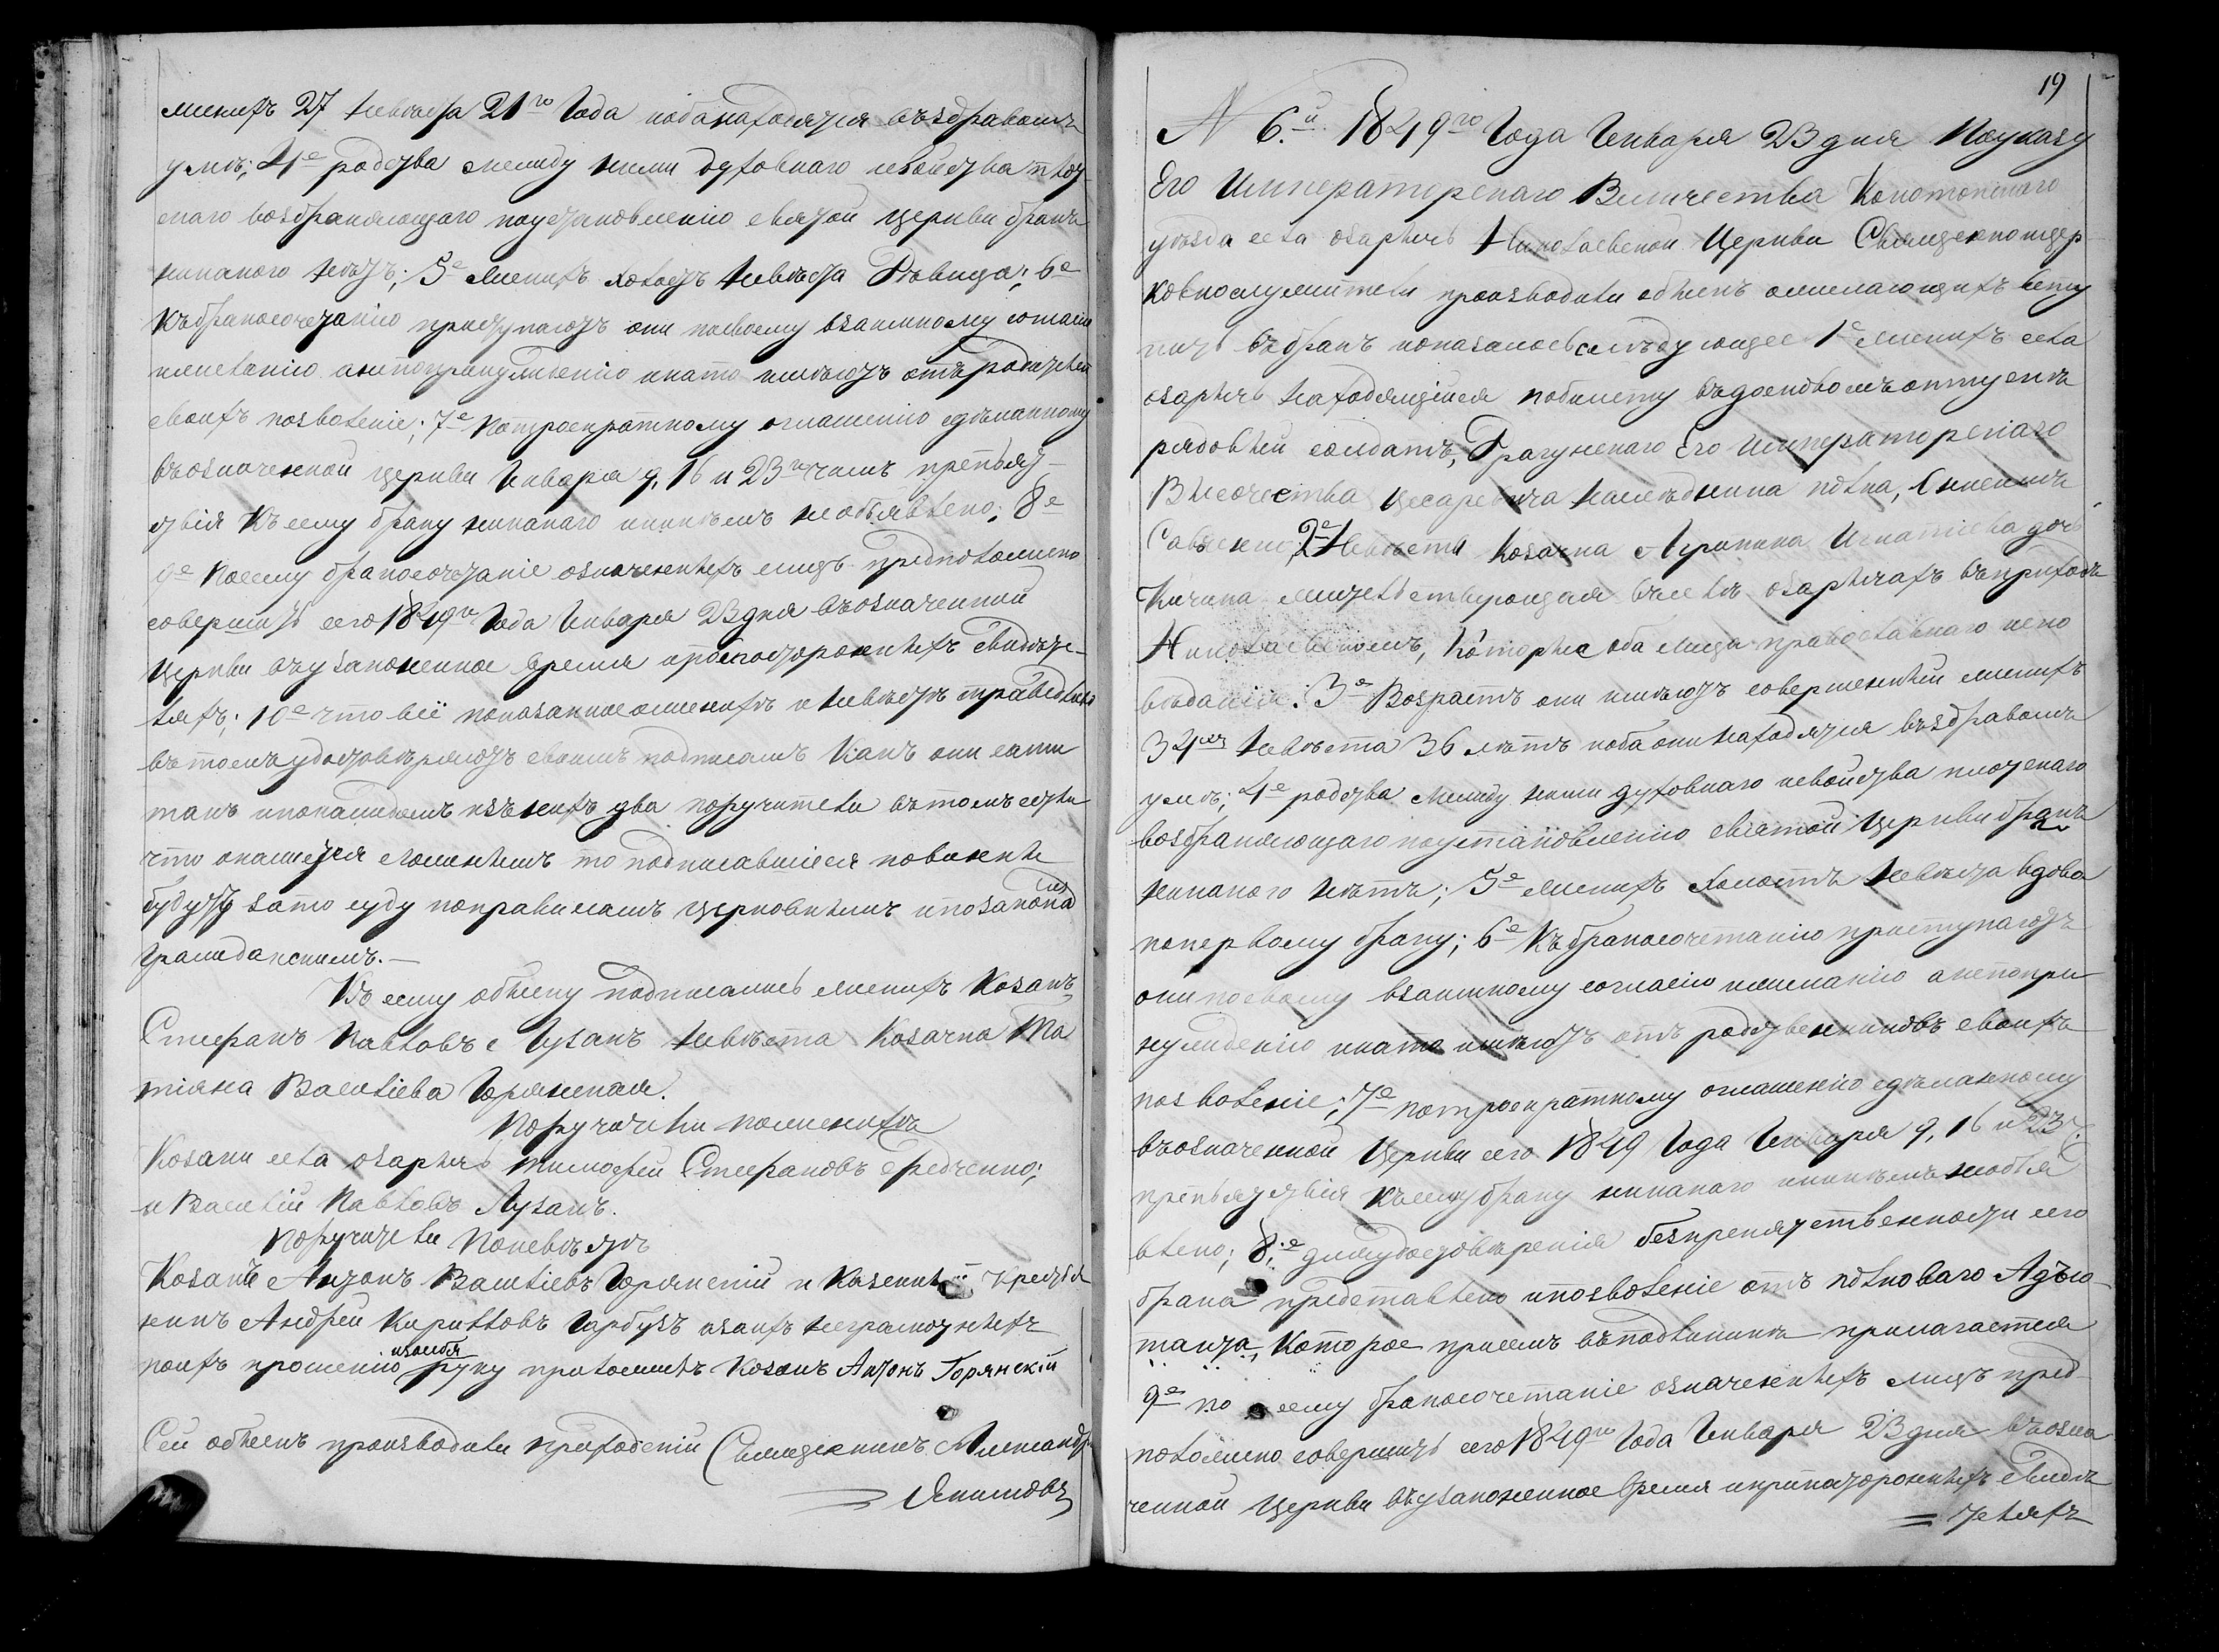 женихъ 27 невѣста 21го Года и оба находятся въ здравомъ
умѣ; 4е родства между ними духовнаго и свойства плот-
скаго возбраняющаго по установленію святой церкви бракъ
никакого нетъ; 5е Женихъ холостъ невѣста Дѣвица; 6е
Къ бракосочетанію приступаютъ они по своему взаимному согласію
и желанію а не по принужденію и на то имѣютъ отъ родителей
своихъ позволеніе; 7е По троекратному оглашенію сдѣланному
въ означенной церкви Января 9, 16 и 23го числъ препят-
ствія Къ сему браку никакаго никѣмъ не объявлено; 8е
9е По сему бракосочетаніе означенныхъ лицъ предположено
совершить сего 1849го Года Января 23 дня въ означенной
Церкви въ узаконенное время при постороннихъ свидѣте-
ляхъ; 10е что всё показанное о женихѣ и невѣстѣ справедливо
въ томъ удостовѣряютъ своимъ подписомъ Какъ они сами
такъ и по каждомъ изъ нихъ два поручители въ томъ если
что окажется ложнымъ то подписавшіеся повинны
будутъ за то суду по правиламъ церковнымъ и по законамъ
Гражданскимъ.—
Къ сему обыску подписались женихъ Козакъ
Стефанъ Павловъ Лузанъ невѣста Козачка Та
тіяна Василіева Горянская.
Поручители по женихѣ
Козаки села озарычь Тимофей Стефановъ Середченко;
и Василій Павловъ Лузанъ.
Поручители По невѣстѣ
Козакъ Антонъ Василіевъ Горянскій и Казенный Крестья
нинъ Андрей Кирилловъ Гарбузъ а за ихъ неграмотныхъ
по ихъ прошенію и за себя руку приложилъ Козакъ Антонъ Горянскій
Сей обыскъ производили приходскій Священникъ Александръ
Якимовъ
19
N 6.й 1849го Года Января 23 дня По указу
Его Императорскаго Величества Конотопского
уѣзда села озарычь Николаевской Церкви Священноцер-
ковнослужители производили обыскъ о желающихъ всту
пить въ бракъ и оказалось слѣдующее 1е женихъ села
озарычь находящійся по билету въ домовомъ отпускѣ
рядовый солдатъ, Драгунскаго Его Императорскаго
Высочества Цесаревича Наслѣдника полка,
Савченко, 2е Невѣста Козачка Агрипина Игнатіева дочь
Кичина жительствующая въ селѣ озарычахъ въ приходѣ
Николаевскомъ, Которые оба лица православнаго испо
вѣданія. 3е Возрастъ они имѣютъ совершенный женихъ
34 невѣста 36 лѣтъ и оба они находятся въ здравомъ
умѣ; 4е родства Между ними духовнаго и свойства плотскаго
возбраняющаго по установленію святой Церкви бракъ
никакого нѣтъ; 5е Женихъ Холостъ невѣста вдова
по первому браку; 6е Къ бракосочетанію приступаютъ
они по своему взаимному согласію и желанію а не по при
нужденію и на то имѣютъ отъ родственниковъ своихъ
позволеніе; 7е по троекратному оглашенію сдѣланному
въ означенной Церкви сего 1849 Года Января 9, 16 и 23
препятствія Къ сему браку никакаго никѣмъ не объя
влено; 8.е для удостовѣренія безпрепятственности сего
брака представлено и позволеніе отъ полковаго Адъю-
танта, Которое при семъ въ подлинникѣ прилагается
9е по сему бракосочетаніе означенныхъ лицъ пред-
положено совершить сего 1849го Года Января 23 дня въ озна
ченной Церкви въ узаконенное время и при постороннихъ свидѣ
= теляхъ